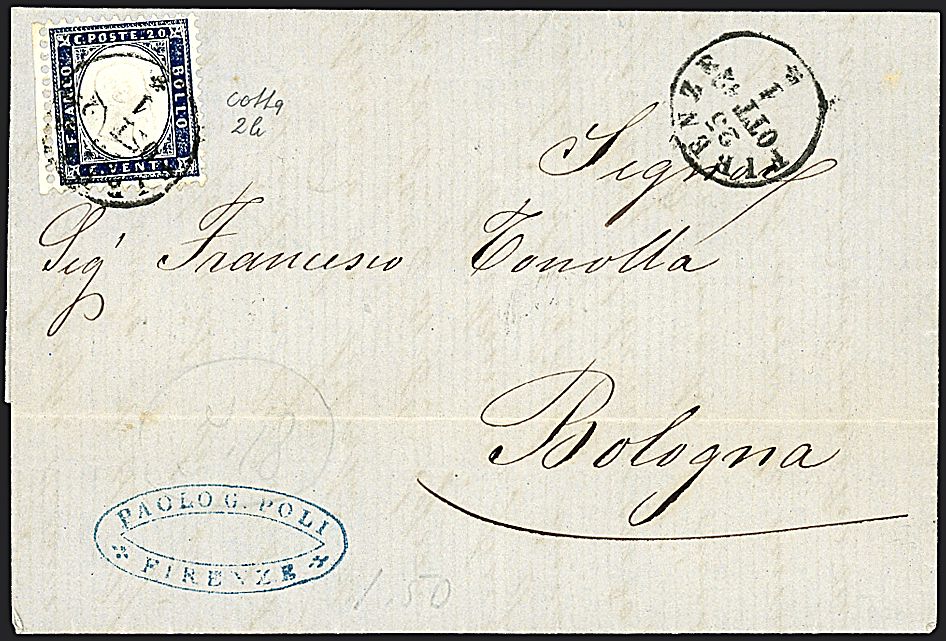 C. POSTE. 20
FRANCO
BOLLO
C. VENTI
cotta
2h
FIRENZE
1
OTT
* 
Signor
Sig.r Francesco Tonolla
Bologna
PAOLO G. POLI
FIRENZE
1.50